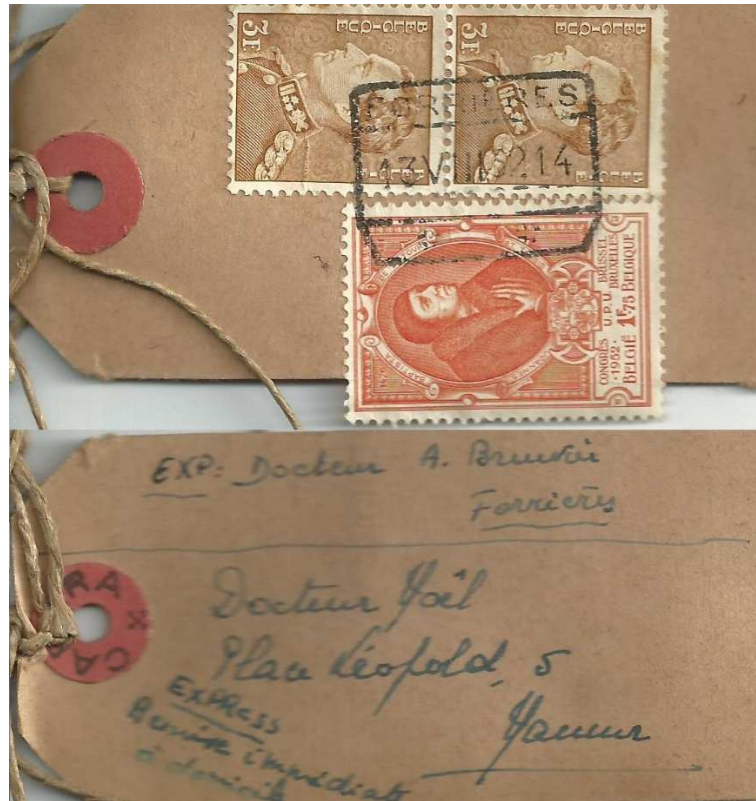 BELGIQUE
3F
BELGIE
BELGIQUE
3F
BELGIE
FORRIERES
13 VIII 52 14
CONGRÈS U.P.U. BRUSSEL
·1952· BRUXELLES
BELGIË 1F75 BELGIQUE
EXP: Docteur A.
Forrières
Docteur Noël
Place Léopold, 5
Namur
EXPRESS
Remise immédiate
à domicile